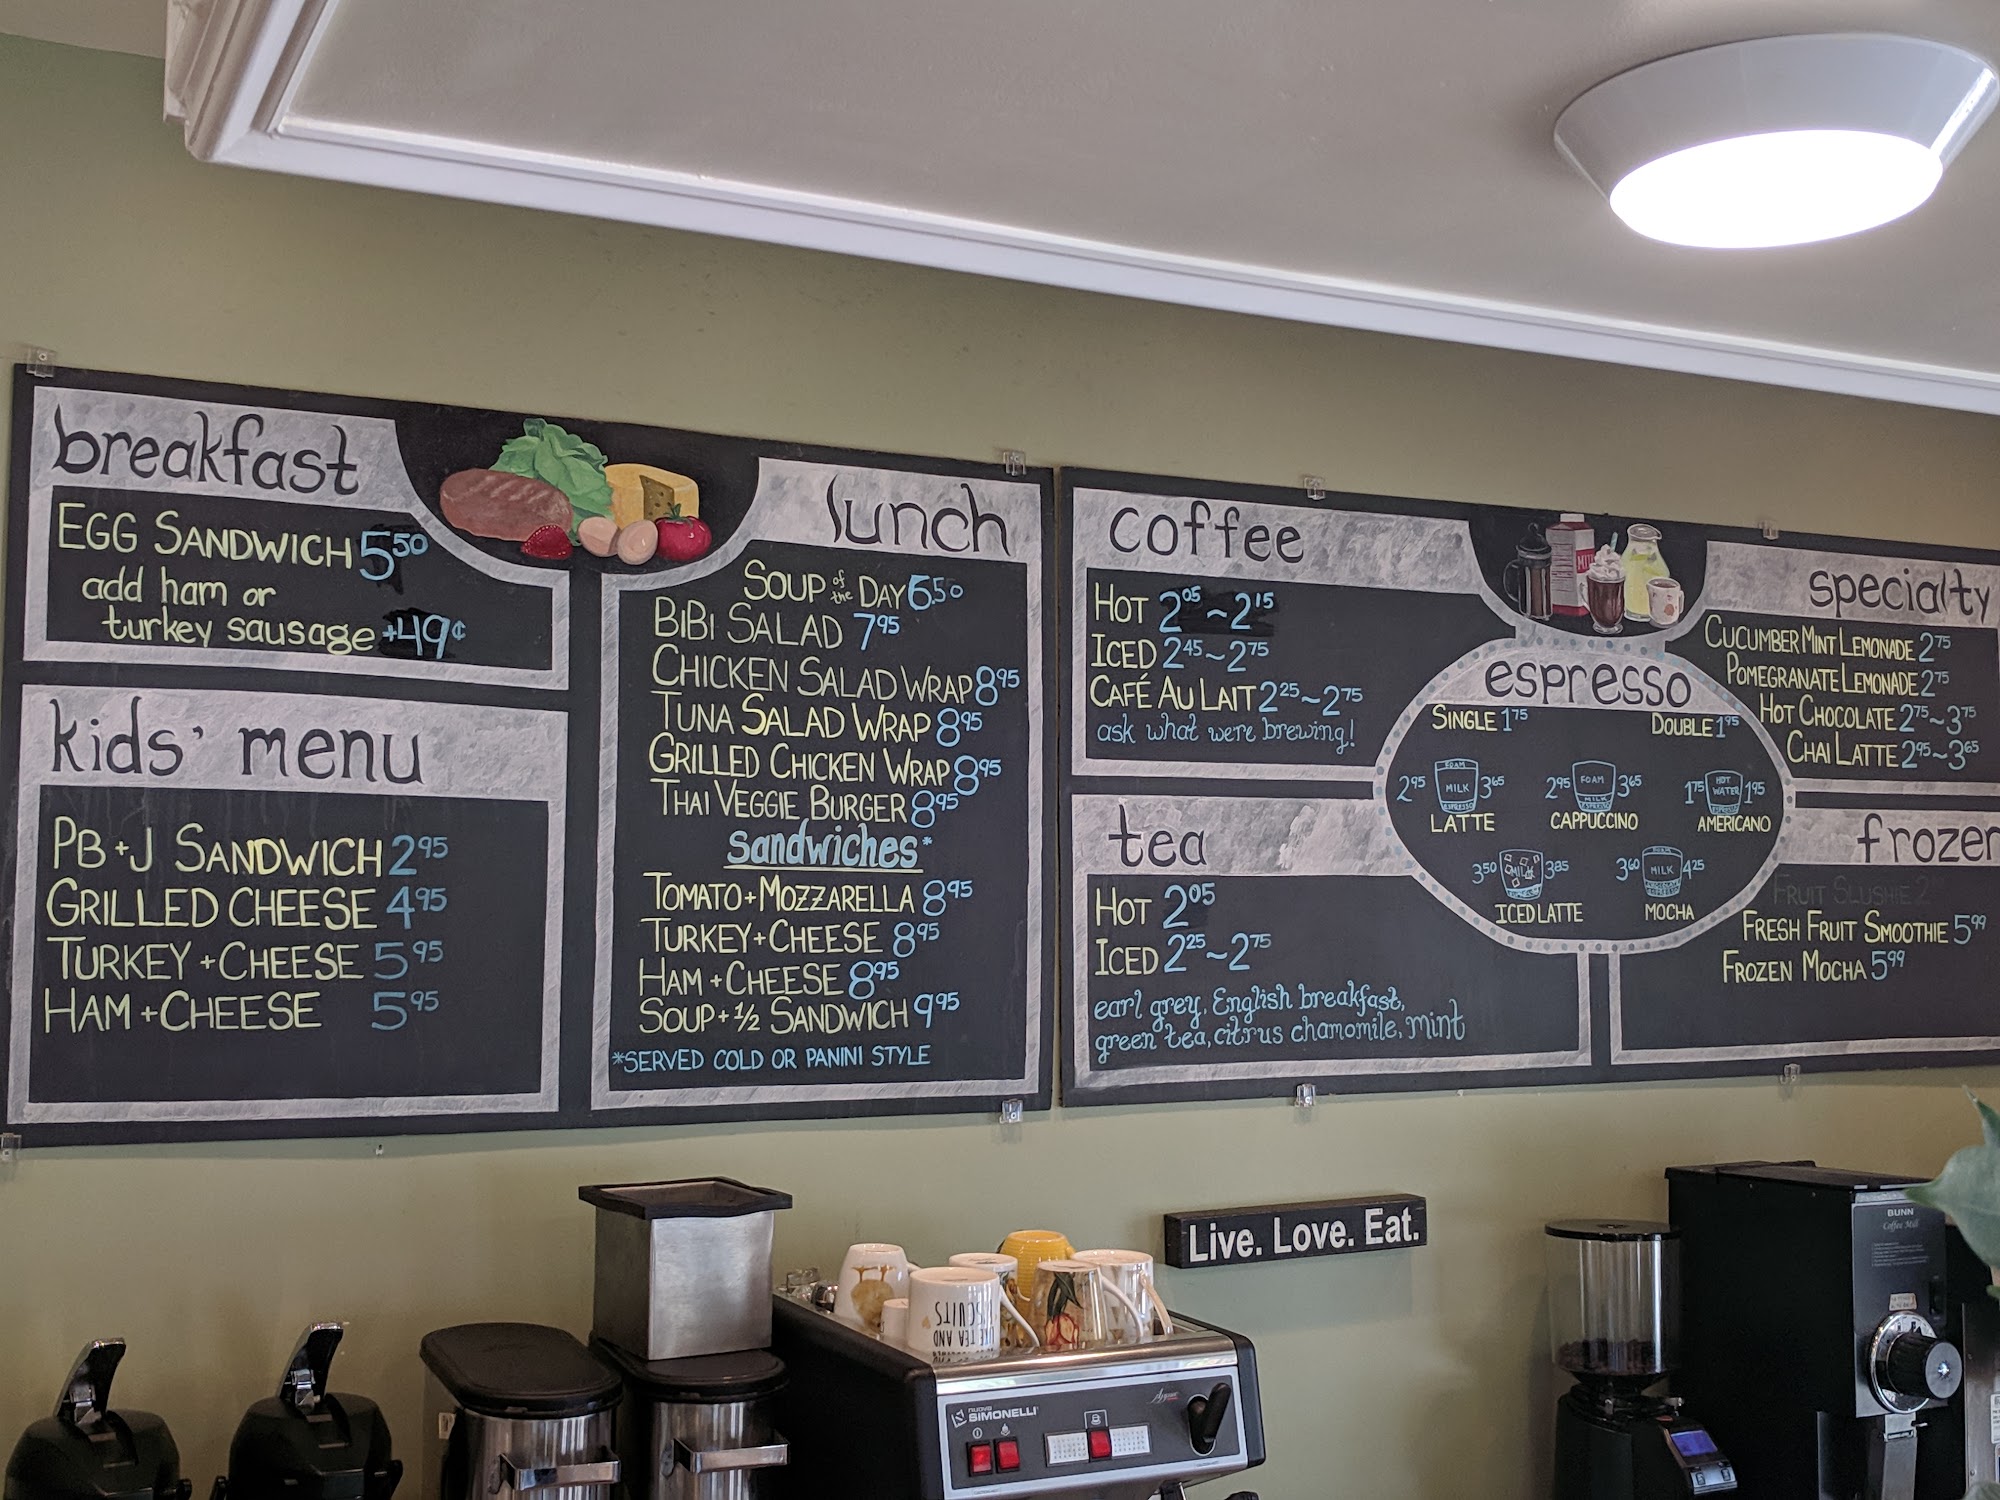 breakfast
EGG SANDWICH 5.50
add ham or
turkey sausage +49¢
kids' menu
PB+J SANDWICH 2.95
GRILLED CHEESE 4.95
TURKEY + CHEESE 5.95
HAM + CHEESE 5.95
lunch
SOUP of the DAY 6.50
BIBI SALAD 7.95
CHICKEN SALAD WRAP 8.95
TUNA SALAD WRAP 8.95
GRILLED CHICKEN WRAP 8.95
THAI VEGGIE BURGER 8.95
sandwiches*
TOMATO + MOZZARELLA 8.95
TURKEY + CHEESE 8.95
HAM + CHEESE 8.95
SOUP + 1/2 SANDWICH 9.95
*SERVED COLD OR PANINI STYLE
coffee
HOT 2.05~2.15
ICED 2.45~2.75
CAFÉ AU LAIT 2.25~2.75
ask what were brewing!
tea
HOT 2.05
ICED 2.25~2.75
earl grey, English breakfast,
green tea, citrus chamomile, mint
espresso
SINGLE 1.75 DOUBLE 1.95
FOAM FOAM HOT
2.95 MILK 3.65 2.95 MILK 3.65 1.75 WATER 1.95
ESPRESSO ESPRESSO ESPRESSO
LATTE CAPPUCCINO AMERICANO
3.50 MILK 3.85 3.60 MILK 4.25
ICED LATTE MOCHA
specialty
CUCUMBER MINT LEMONADE 2.75
POMEGRANATE LEMONADE 2.75
HOT CHOCOLATE 2.75~3.75
CHAI LATTE 2.95~3.65
frozen
FRUIT SLUSHIE 2
FRESH FRUIT SMOOTHIE 5.99
FROZEN MOCHA 5.99
Live. Love. Eat.
BISCUITS
LIKE TEA AND
nuova
SIMONELLI
BUNN
Coffee Mill